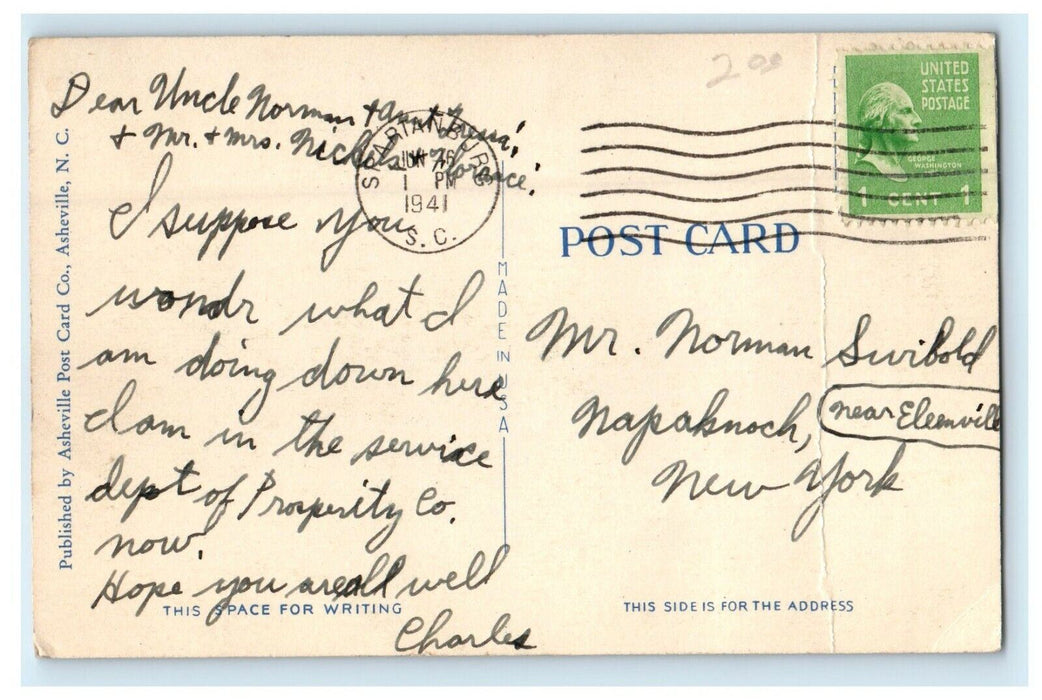 2.00
UNITED
STATES
POSTAGE
GEORGE
WASHINGTON
1 CENT 1
SPARTANBURG
JUN 16
1 PM
1941
S. C.
Dear Uncle Norman + Aunt
+ Mr. + Mrs. Nichols + Florance.
I suppose you
wondr what I
am doing down here
I am in the service
dept of Prosperity Co.
now.
Hope you are all well
Charles
POST CARD
Mr. Norman Swibold
Napaknoch,
near Eleenville
New York
MADE IN USA
Published by Asheville Post Card Co., Asheville, N. C.
THIS SPACE FOR WRITING
THIS SIDE IS FOR THE ADDRESS